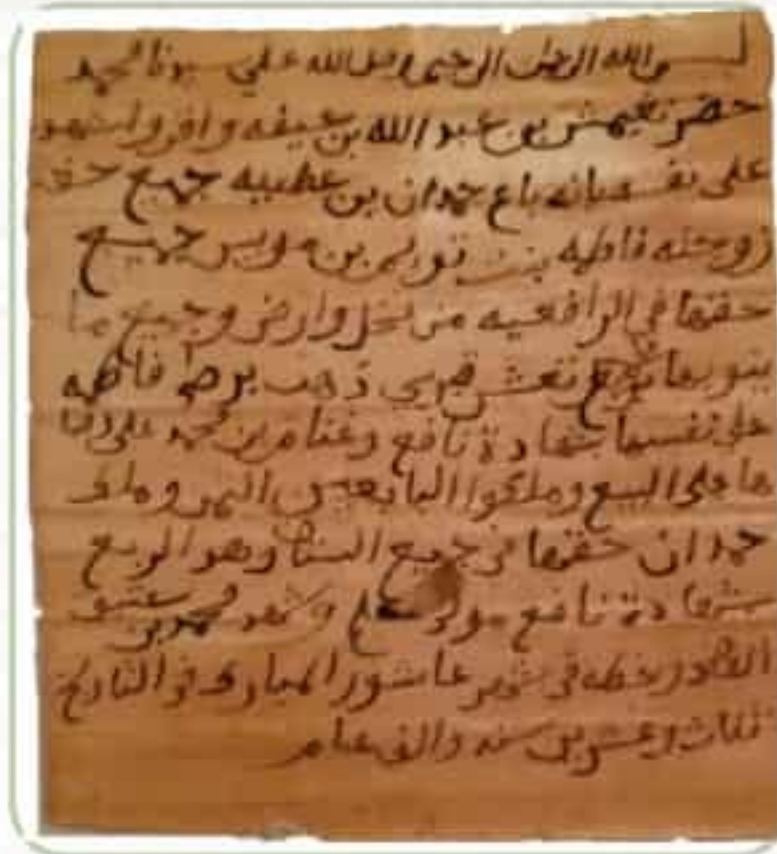 بسم الله الرحمن الرحيم وصل الله علي سيدنا محمد
حضر نغيمش بن عبد الله بن عيفه واقر واشهد
على نفسه بانه باع حمدان بن عطيه جميع حق
زوجته فاطمه بنت تويم بن مويس جميع
حقها في الرافعيه من نخل وارض وجميع ما
ينوبها ذهب برضى فاطمه
على نفسها بشهادة نافع وغنام بن محمد على
ها على البيع وملكوا البايعين الثمن وملك
حمدان حقها من جميع وهو الربع
بشهادة نافع وشهد محمد بن
خطه في شهر عاشور المبارك في التاريخ
ثلاث وعشرين سنه والف عام